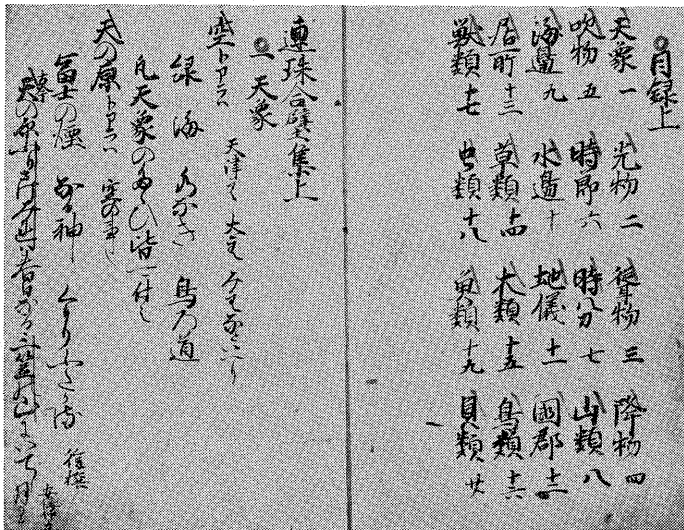 目録上
天象一 光物二 聳物三 降物四
吹物五 時節六 時分七 山類八
海邊九 水邊十 地儀十一 國郡十二
居所十三 草類十四 木類十五 鳥類十六
獣類十七 虫類十八 魚類十九 貝類廿
連珠合壁集上
一 天象
空トアラハ 天津そら 大そら
緑 海 鳥の道
凡天象のたくひ皆可付之
天の原トアラハ 空の事也
冨士の煙 なる神
天の原ふりさけみれは春日なる三笠の山にいてし月